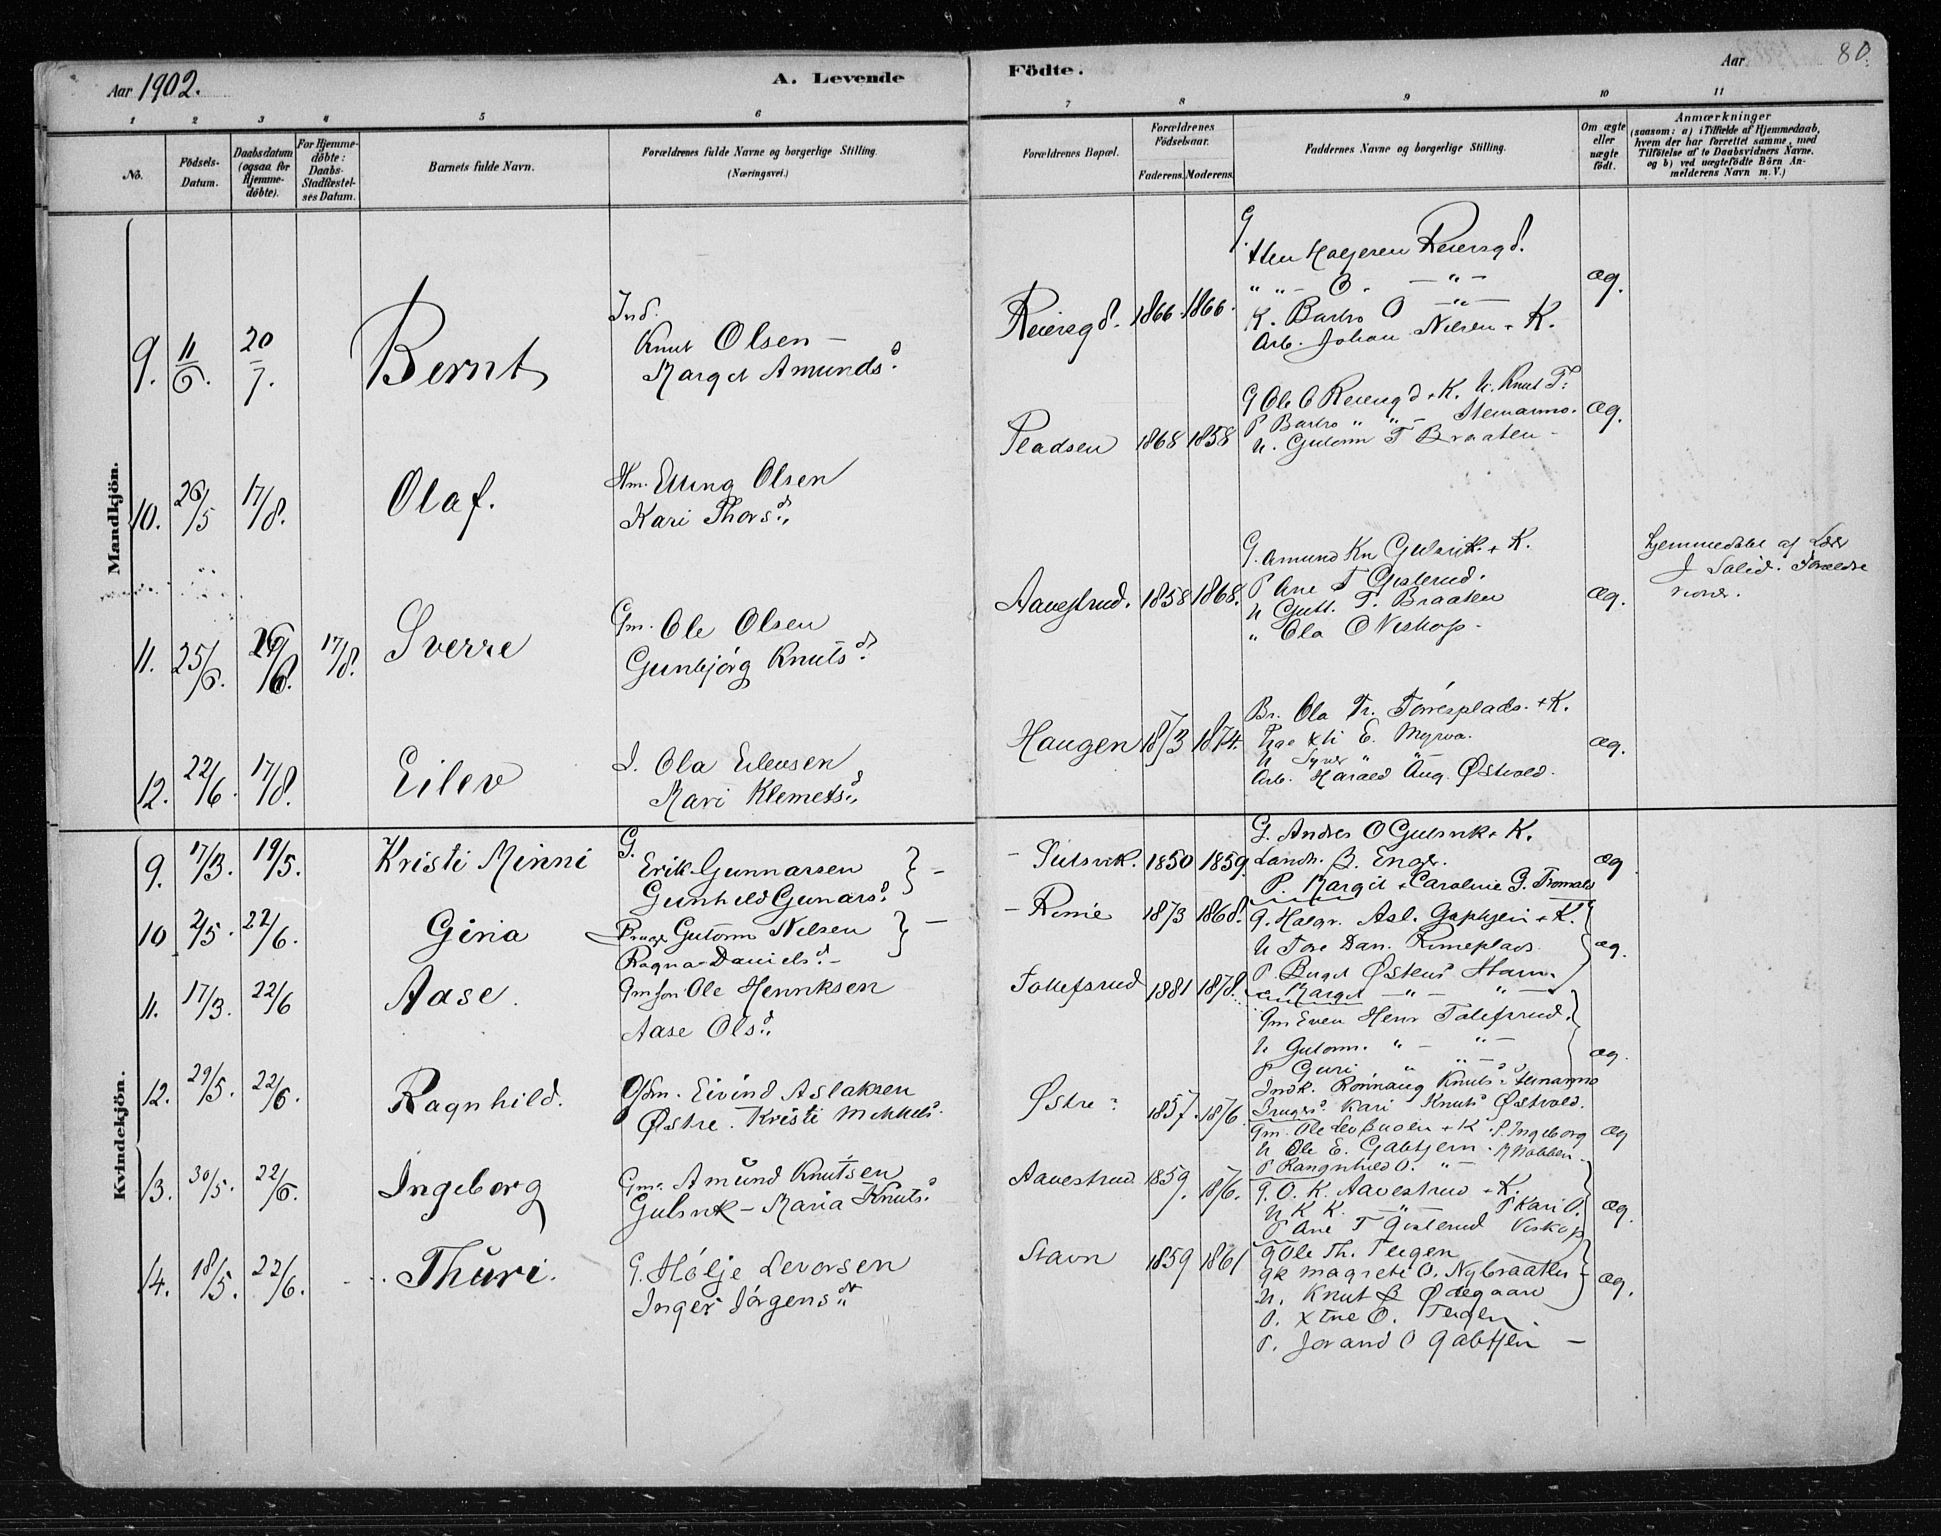 Aar 1902.
A. Levende
Födte.
Aar
80.
1 2 3 4 5 6 7 8 9 10 11
No.
Födsels-Datum.
Daabsdatum (ogsaa for Hjemme-döbte).
For Hjemme-döbte: Daabs-Stadfæstel-ses Datum.
Barnets fulde Navn.
Forældrenes fulde Navne og borgerlige Stilling.
(Næringsvei.)
Forældrenes Bopæl.
Forældrenes Födselsaar.
Faderens. Moderens.
Faddernes Navne og borgerlige Stilling.
Om ægte eller uægte födt.
Anmærkninger
(saasom: a) i Tilfælde af Hjemmedaab,
hvem der har forrettet samme, med
Tilföielse af to Daabsvidners Navne,
og b) ved uægtefödte Börn An-
melderens Navn m. V.)
Mandkjön.
9. 11/6. 20/7. Bernt
Ind.
Knut Olsen –
Marget Amundsd.
Reiersgd. 1866. 1866.
G.
Sten Holgersen Reiersgd.
" " - O. - " -
K. Barbro O - " -
Arb. Johan Nilsen + K.
æg.
10. 26/5 17/8. Olaf.
Hm. Elling Olsen
Kari Thorsd.
Pladsen 1868 1858
G Ole O Reiersgd + K. U. Knut T:
P Barbro " " - Stemanno.
U. Gutorm T Braaten -
æg.
11. 25/6. 29/6. 17/8. Sverre
Gm. Ole Olsen
Gunbjørg Knutsd.
Aavestrud. 1858 1868.
G. Amund Kn Gulsvik + K.
P Ane T Gisterud.
U Gutt. T. Braaten
" Ola O Veskop -
æg.
hjemmedøbt af Lær
J Solid. Forældre
12. 22/6. 17/8. Eilev
I. Ola Eilevsen
Mari Klemetsd.
Haugen 1873 1874.
Br. Ola Tr. Torresplads. + K.
Pige Kti E. Myrva.
U Syver " "
Arb. Harald Aug. Østvold.
æg.
Kvindekjön.
9. 17/3. 19/5. Kristi Minni
G.
Erik Gunnarsen
Gunhild Gunarsd.
– Gulsvik. 1850 1859.
G. Andres O Gulsvik + K.
Landh. B. Enger.
P. Margit + Caroline G. Tromald
æg
10 2/5. 22/6. Gina
Gutorm Nilsen
Ragna Danielsd. –
– Rime 1873 1868.
G. Halgr. Asl. Gaptjein + K.
U Tore Dan. Rimeplads.
P. Birget Østensd Stavn.
" Marget - " - " -
æg.
11. 17/3. 22/6 Aase.
Gm søn Ole Henriksen
Aase Olsd.
Tollefsrud 1881 1878.
Gm Even Henr Tolefsrud.
U Gutorm. " - " -
P Guri " " -
æg.
12. 29/5. 22/6. Ragnhild.
Gdm. Eivind Aslaksen
Østre. Kristi Mikkelsd.
Østre 1857. 1876
Indk. Rønnaug Knutsd Stemanno
Kari Knutsd Østvold.
Gm. Ole Lev Buolen + K. P. Ingeborg
U Ole E. Gabtjern. K Nobben -
P Rangnhild O. " -
æg
13. 30/5. 22/6. Ingeborg
Gm. Amund Knutsen
Gulsvik – Maria Knutsd.
Aavestrud 1859. 1876.
G. O. K. Aavestrud + K.
U K K. - " - P Kari O.
P Ane T Gisterud Veskop
æg.
14. 18/5. 22/6. Thuri.
G. Holje Levorsen
Inger Jørgensdr
Stavn 1859 1861
G Ole Th. Teigen
gk Magrete O. Nybraaten
U. Knut B Ødegaard
P. Xtne O. Teigen.
P. Jorand O Gabtjen –
æg.